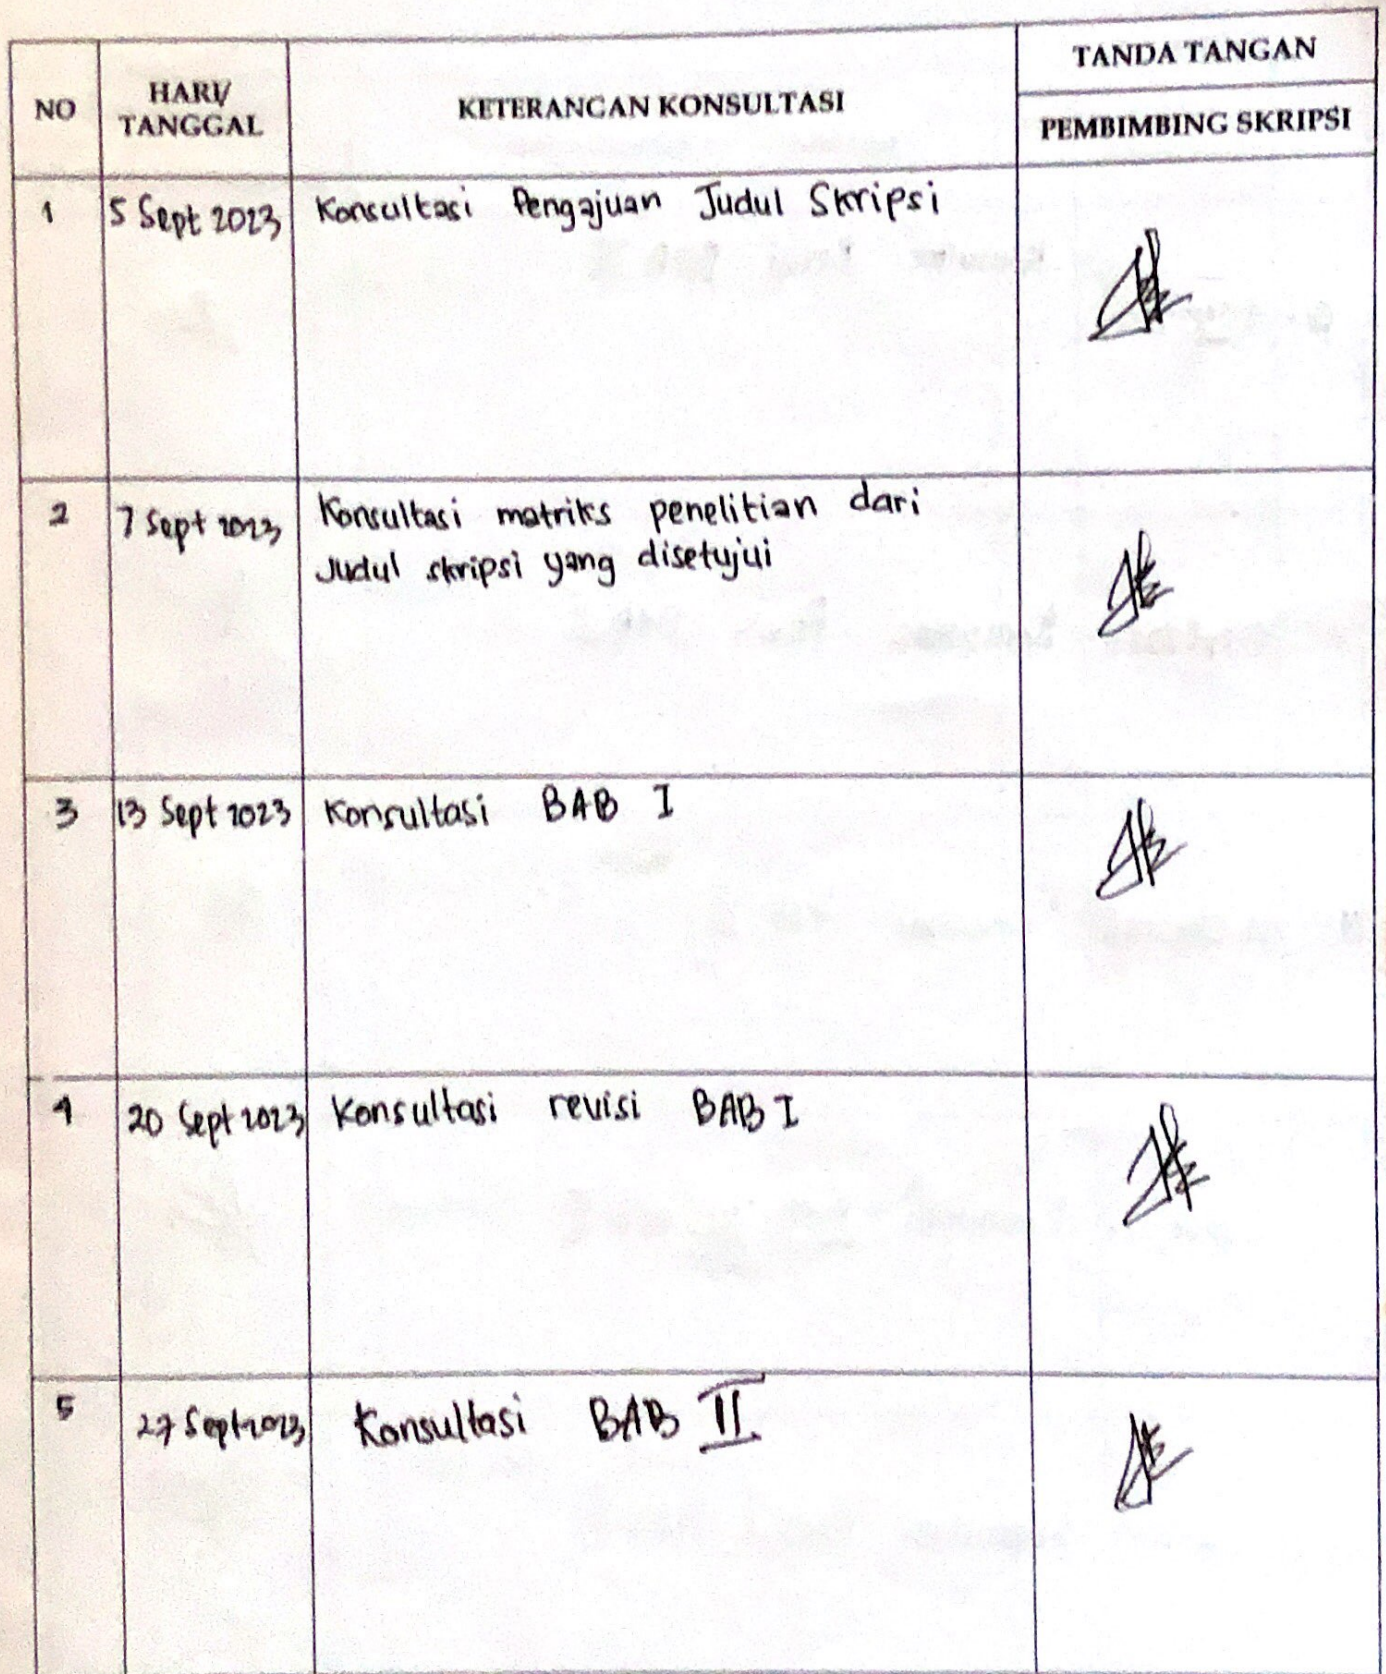 NO
HARI/
TANGGAL
KETERANGAN KONSULTASI
TANDA TANGAN
PEMBIMBING SKRIPSI
1
5 Sept 2023
Konsultasi Pengajuan Judul Skripsi
2
7 Sept 2023
Konsultasi matriks penelitian dari
Judul skripsi yang disetujui
3
13 Sept 2023
Konsultasi BAB I
4
20 Sept 2023
Konsultasi revisi BAB I
5
27 Sept 2023
Konsultasi BAB II